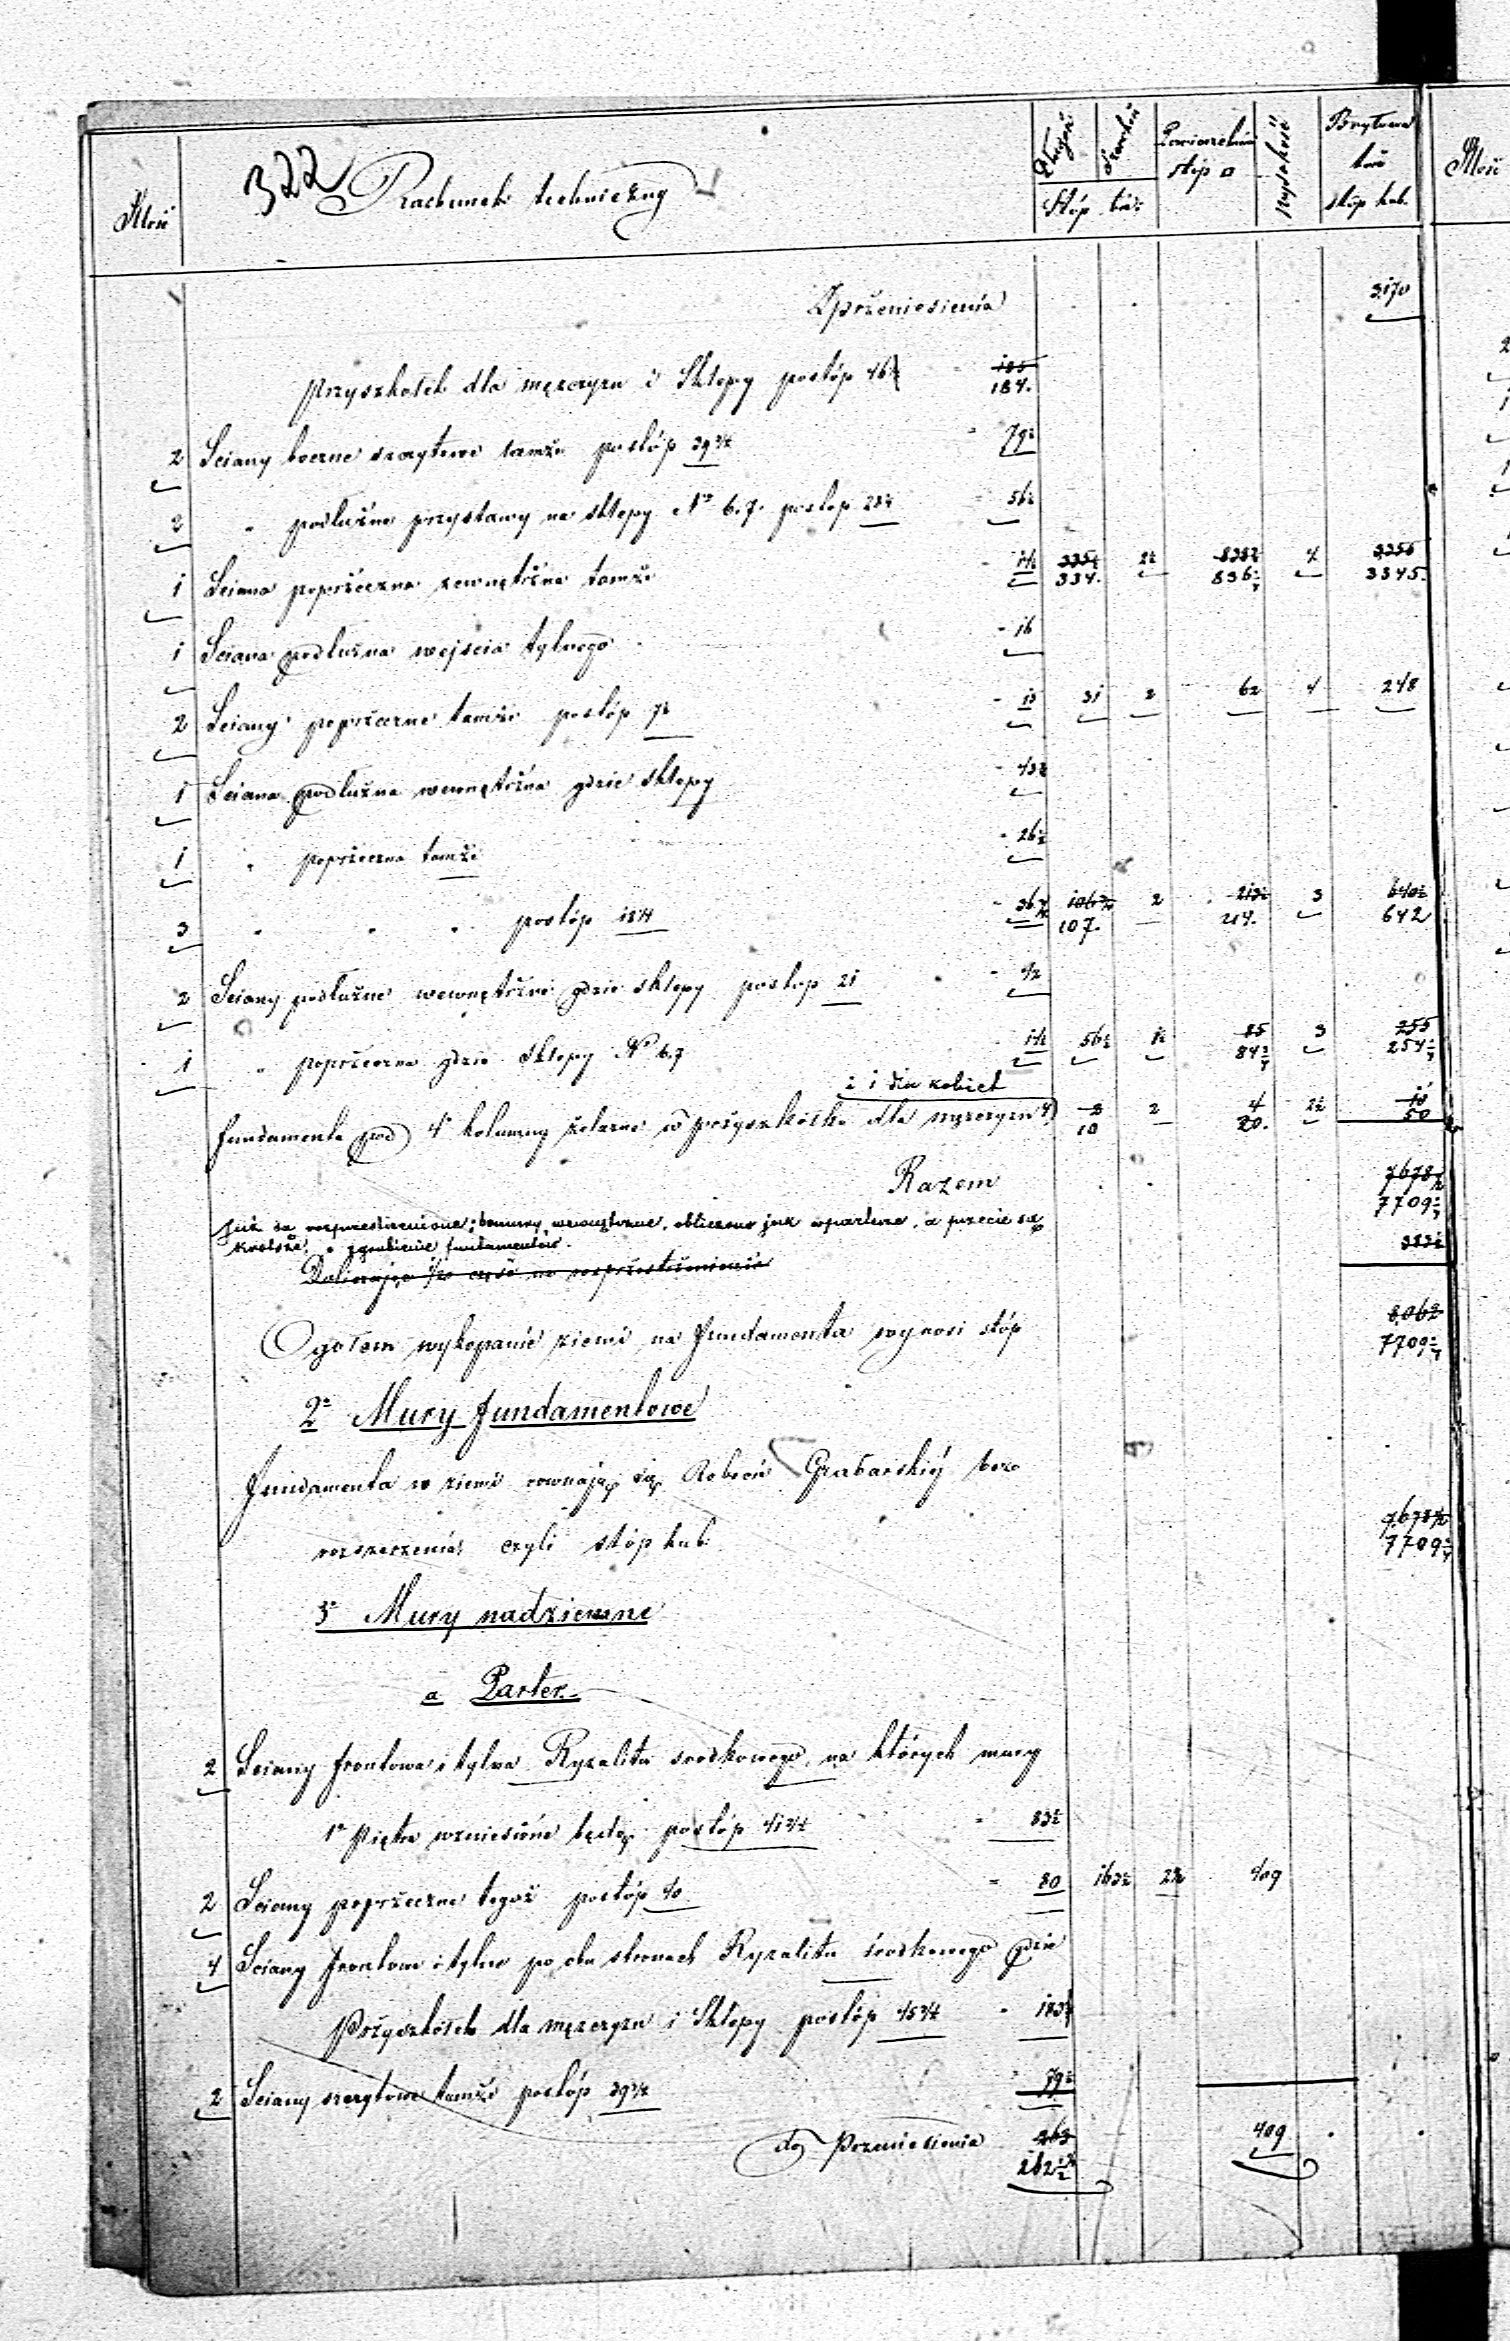 Ilość
322 Rachunek techniczny
Długość Szerokość
Stóp bież.
Powierzchnia stóp □
Wysokość
Brytowatość stóp kub.
Ilość
Z przeniesienia 3,170
przyszkółek dla mężczyzn i Sklepy postóp 46¼ 185 184.
2 Sciany boczne szczytowe tamże postóp 39¾ 79½
2 " podłużne przystawy na sklepy No 6.7. postóp 28¼ 56½
1 Sciana poprzeczna zewnętrzna tamże 14½ 335½ 334. 2½ 838½ 836¼ 4 3355 3345.
1 Sciana podłużna wejścia tylnego 16
2 Sciany poprzeczne tamże postóp 7½ 15 31 2 62 4 248
1 Sciana podłużna wewnętrzna gdzie sklepy 43½
1 " poprzeczna tamże 26½
3 " " " postóp 12¼ 36¾ 106¾ 107. 2 213½ 214. 3 640½ 642
2 Sciany podłużne wewnętrzne gdzie sklepy postóp 21 42
1 " poprzeczna gdzie Sklepy No 6.7 14½ 56½ 1½ 85 84¾ 3 255 254¼
i 1 dla kobiet
fundamenta pod 4 kolumny żelazne w przyszkółku dla mężczyzn 2 10 2 4 20. 2½ 10 50
Razem 7678½ 7709¼
Już są rozprzestrzenione; bo mury wewnętrzne, obliczone jak w parterze, a przecie są
krótsze, o zgrubienie fundamentów. 383½
Doliczając 1/20 część na rozprzestrzenienie
Ogółem wykopanie ziemi na fundamenta wynosi stóp 8,062 7709¼
2° Mury fundamentowe
fundamenta w ziemi równają się Robocie Grabarskiej bez
rozszerzenia czyli stóp kub. 7,678½ 7709¼
3° Mury nadziemne
a Parter.
2 Sciany frontowa i tylna Ryzalitu srodkowego, na których mury
1° Piętra wzniesione będą, postóp 41¾ 83½
2 Sciany poprzeczne tegoż postóp 40 80 163½ 2½ 409
4 Sciany frontowe i tylne po obu stronach Ryzalitu środkowego gdzie
Przyszkółek dla mężczyzn i Sklepy postóp 45¾ 183
2 Sciany szczytowe tamże postóp 39¾ 79½
do Przeniesienia 263 262½ 409